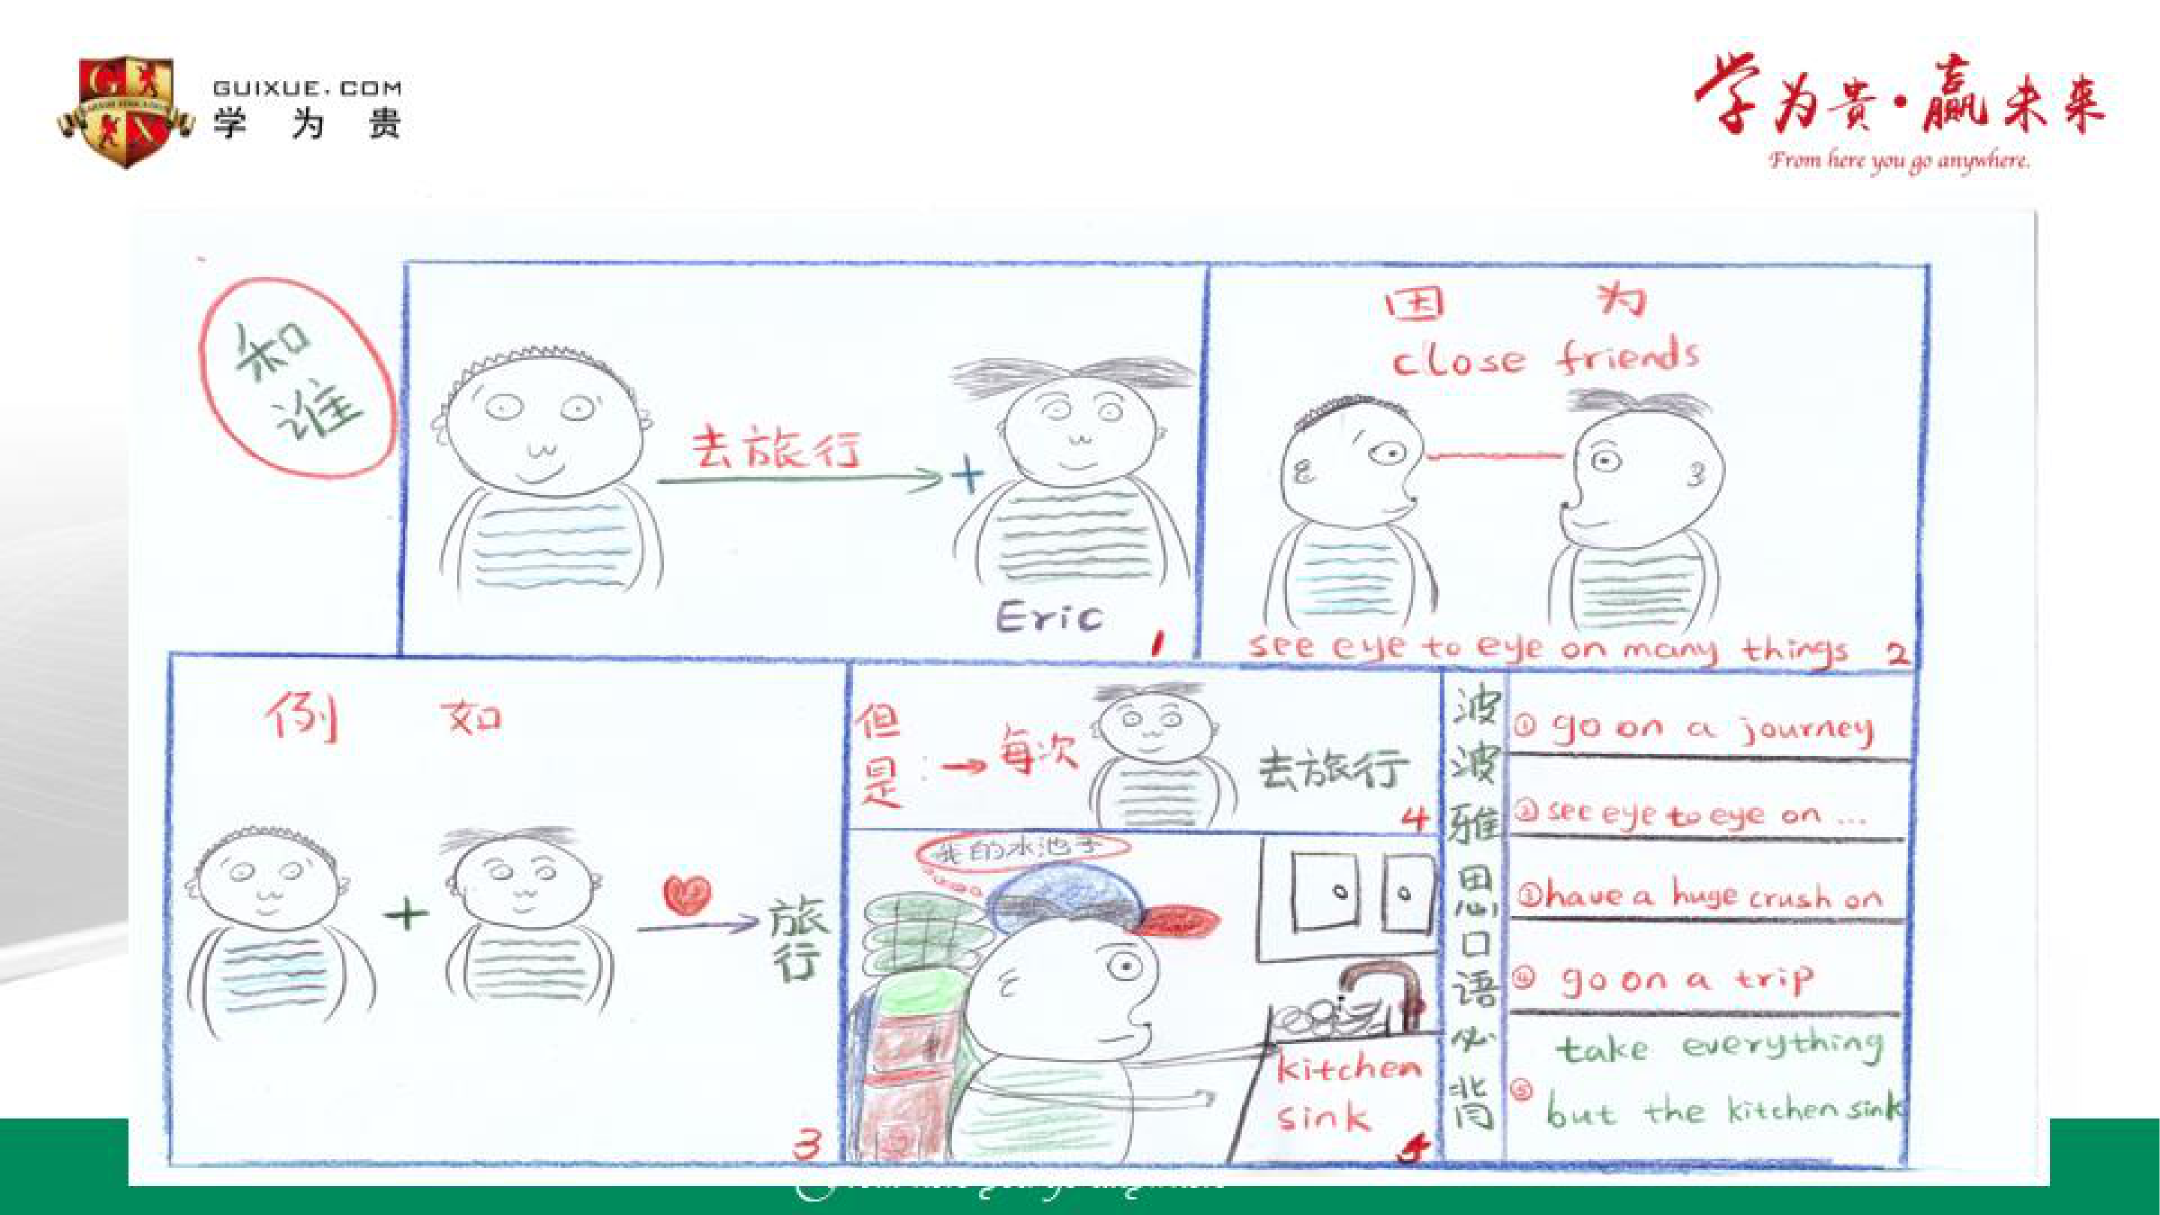 GUIXUE.COM
学为贵
学为贵·赢未来
From here you go anywhere.
和
谁
去旅行
+
Eric
1
因为
close friends
see eye to eye on many things 2
例如
+
旅
行
3
但
是:→每次
去旅行
4
我的水池子
kitchen
sink
5
波波雅思口语必背
① go on a journey
② see eye to eye on ...
③ have a huge crush on
④ go on a trip
⑤ take everything
but the kitchen sink
From here you go anywhere